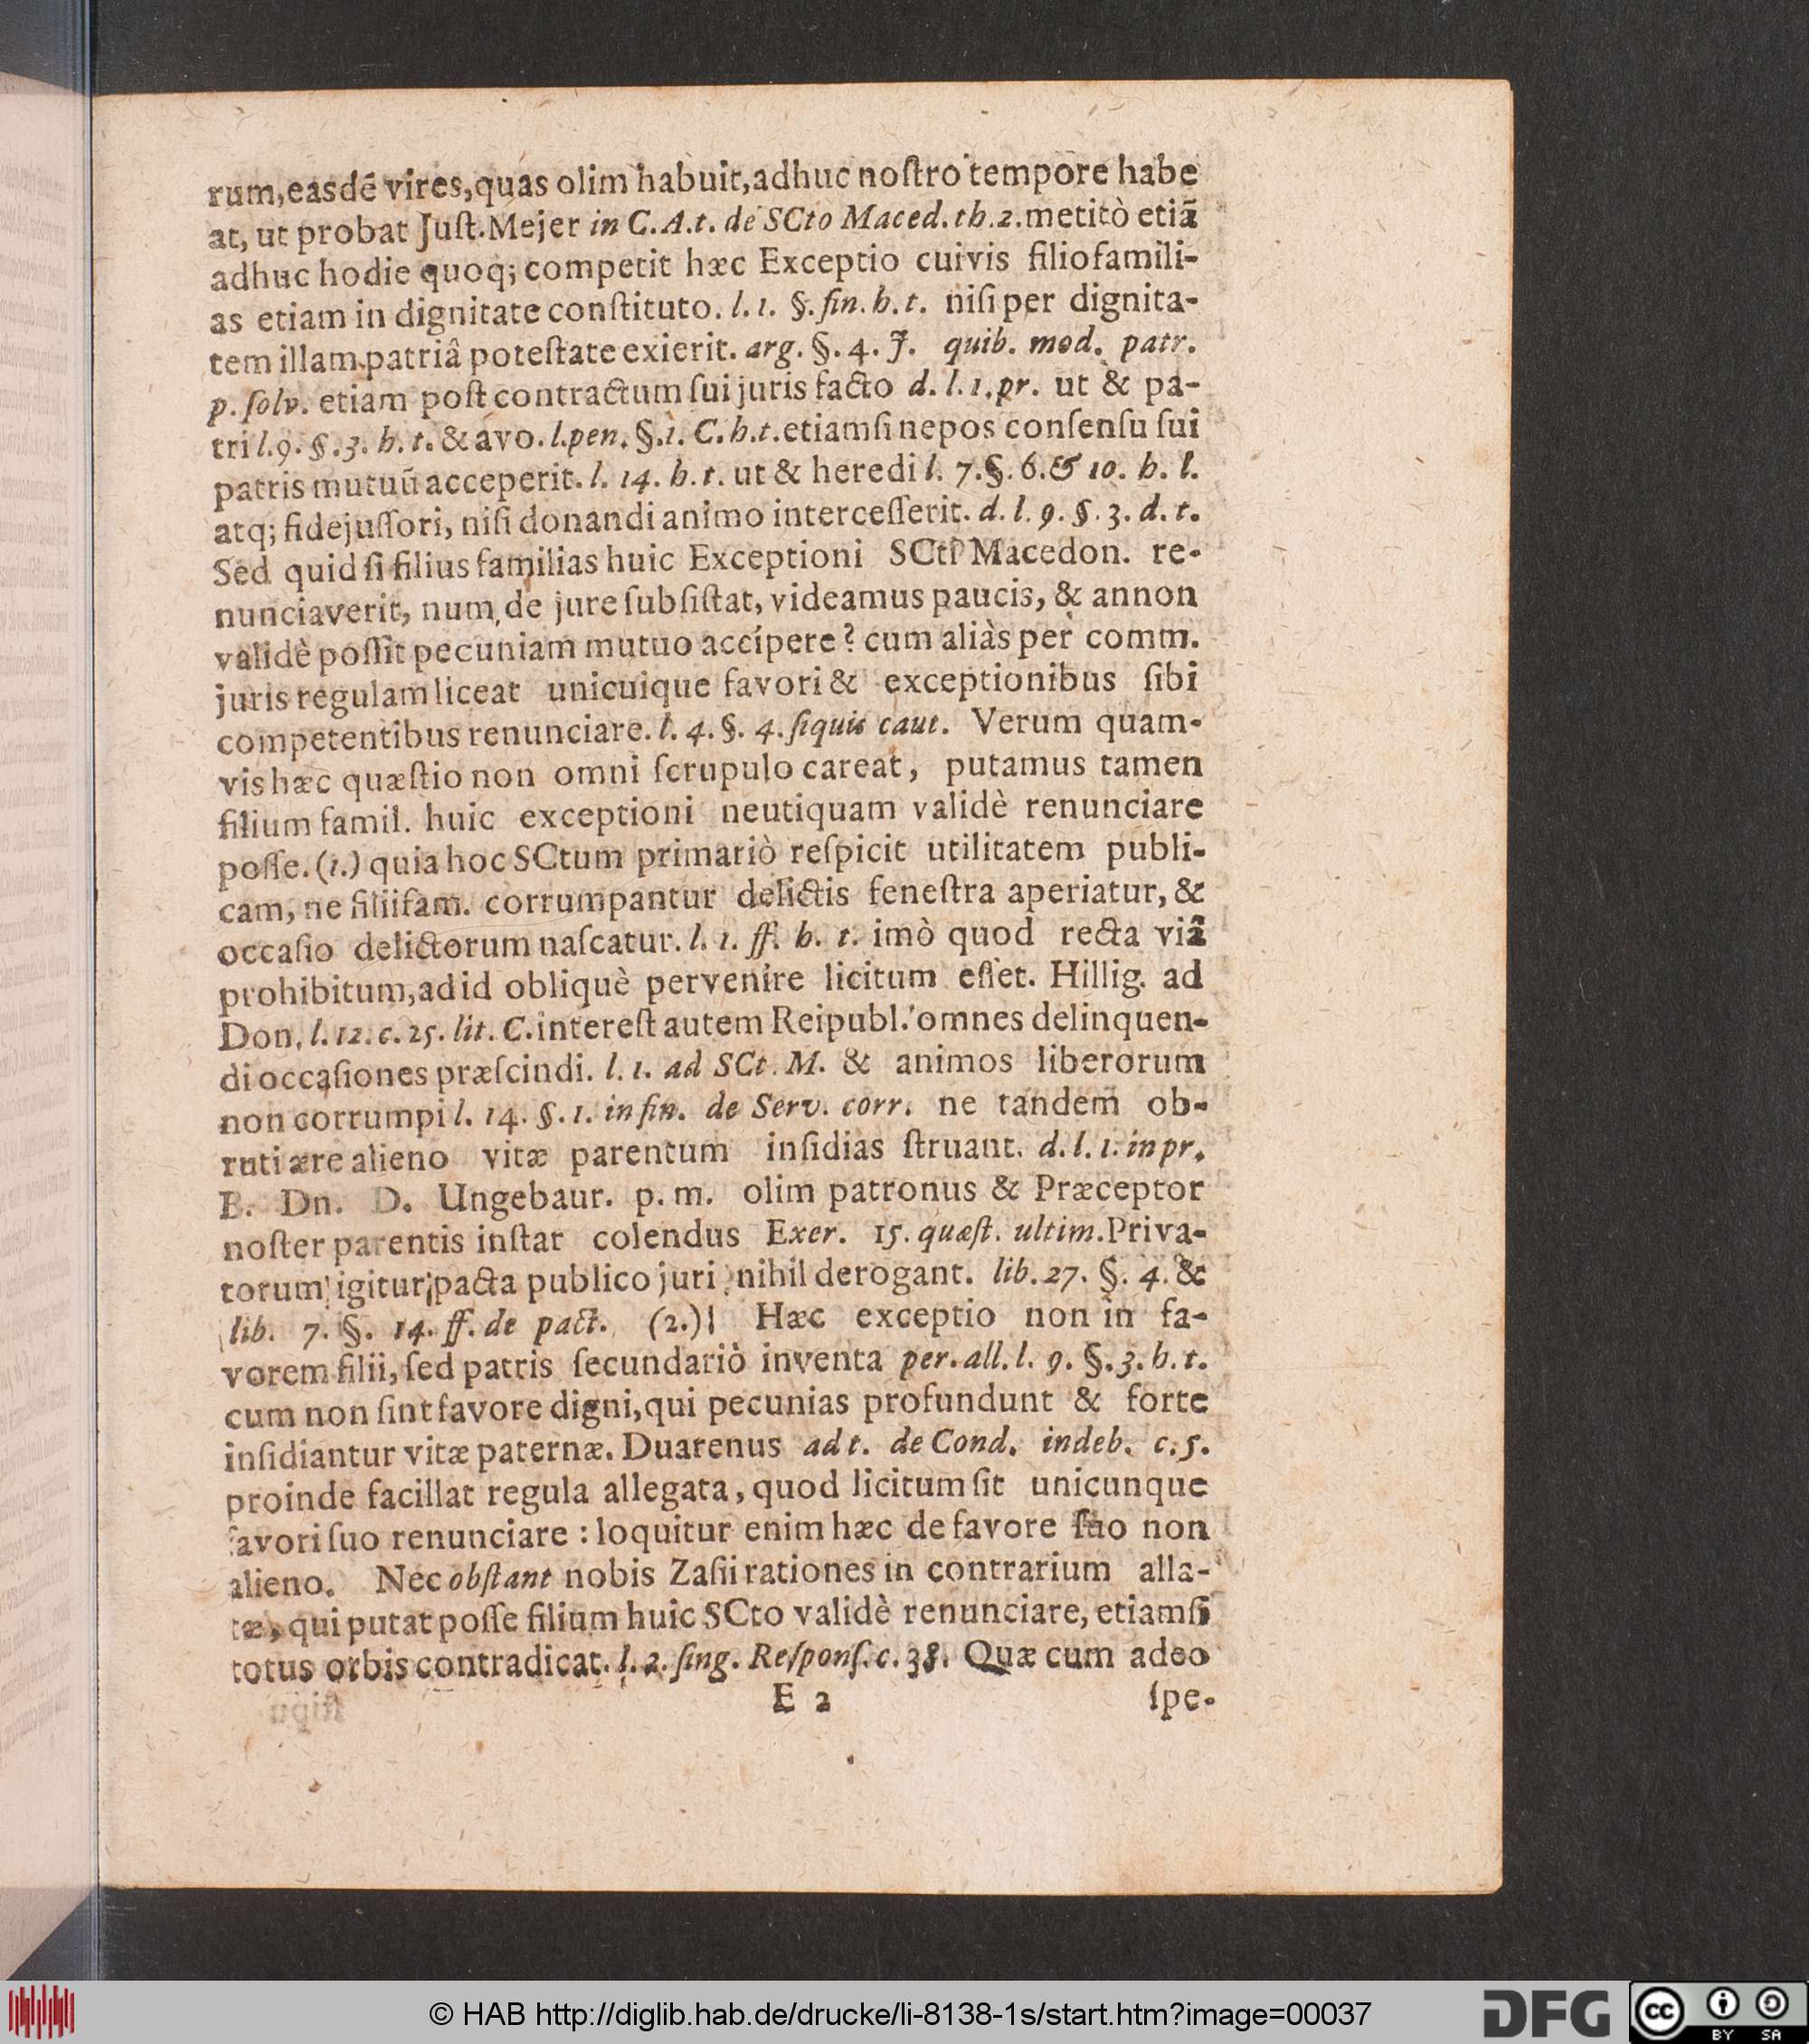 rum,easdē vires,quas olim habuit,adhuc noſtro tempore habe
at, ut probat Juſt.Mejer in C.A.t. de SCto Maced.th.2.metitò etiā
adhuc hodie quoq; competit hæc Exceptio cuivis filiofamili-
as etiam in dignitate conſtituto. l.1. §.fin.h.t. niſi per dignita-
tem illam patriâ poteſtate exierit. arg. §. 4. J. quib. mod. patr.
p. ſolv. etiam poſt contractum ſui juris facto d. l. 1.pr. ut & pa-
tri l.9. §.3. h. t. & avo. l.pen. §.1. C.h.t.etiamſi nepos conſenſu ſui
patris mutuū acceperit. l. 14. h. t. ut & heredi l. 7.§. 6.& 10. h. l.
atq; fidejuſſori, niſi donandi animo interceſſerit. d. l. 9. §. 3. d. t.
Sed quid ſi filius familias huic Exceptioni SCti Macedon. re-
nunciaverit, num de jure ſubſiſtat, videamus paucis, & annon
validè poſſit pecuniam mutuo accipere? cum aliàs per comm.
juris regulam liceat unicuique favori & exceptionibus ſibi
competentibus renunciare. l. 4. §. 4. ſiquis caut. Verum quam-
vis hæc quæſtio non omni ſcrupulo careat, putamus tamen
filium famil. huic exceptioni neutiquam validè renunciare
poſſe. (1.) quia hoc SCtum primariò reſpicit utilitatem publi-
cam, ne filiifam. corrumpantur delictis feneſtra aperiatur, &
occaſio delictorum naſcatur. l. 1. ff. h. t. imò quod recta viâ
prohibitum,ad id obliquè pervenire licitum eſſet. Hillig. ad
Don. l. 12. c. 25. lit. C.intereſt autem Reipubl. omnes delinquen-
di occaſiones præſcindi. l. 1. ad SCt. M. & animos liberorum
non corrumpi l. 14. §. 1. in fin. de Serv. corr. ne tandem ob-
ruti ære alieno vitæ parentum inſidias ſtruant. d. l. 1. in pr.
B. Dn. D. Ungebaur. p. m. olim patronus & Præceptor
noſter parentis inſtar colendus Exer. 15. quæſt. ultim.Priva-
torum igitur pacta publico juri nihil derogant. lib. 27. §. 4. &
lib. 7. §. 14. ff. de pact. (2.) Hæc exceptio non in fa-
vorem filii, ſed patris ſecundariò inventa per. all. l. 9. §. 3. h. t.
cum non ſint favore digni,qui pecunias profundunt & forte
inſidiantur vitæ paternæ. Duarenus ad t. de Cond. indeb. c. 5.
proinde facillat regula allegata, quod licitum ſit unicunque
favori ſuo renunciare : loquitur enim hæc de favore ſuo non
alieno. Nec obſtant nobis Zaſii rationes in contrarium alla-
tæ, qui putat poſſe filium huic SCto validè renunciare, etiamſi
totus orbis contradicat. l. 2. ſing. Reſponſ. c. 38. Quæ cum adeo
E 2 ſpe-
© HAB http://diglib.hab.de/drucke/li-8138-1s/start.htm?image=00037
DFG
cc BY SA